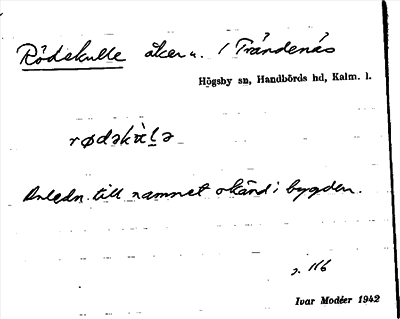 Rödskulle åker u. / Trändenäs
Högsby sn, Handbörds hd, Kalm. l.
rødskàlə
Anledn. till namnet okänd i bygden.
s. 116
Ivar Modéer 1942